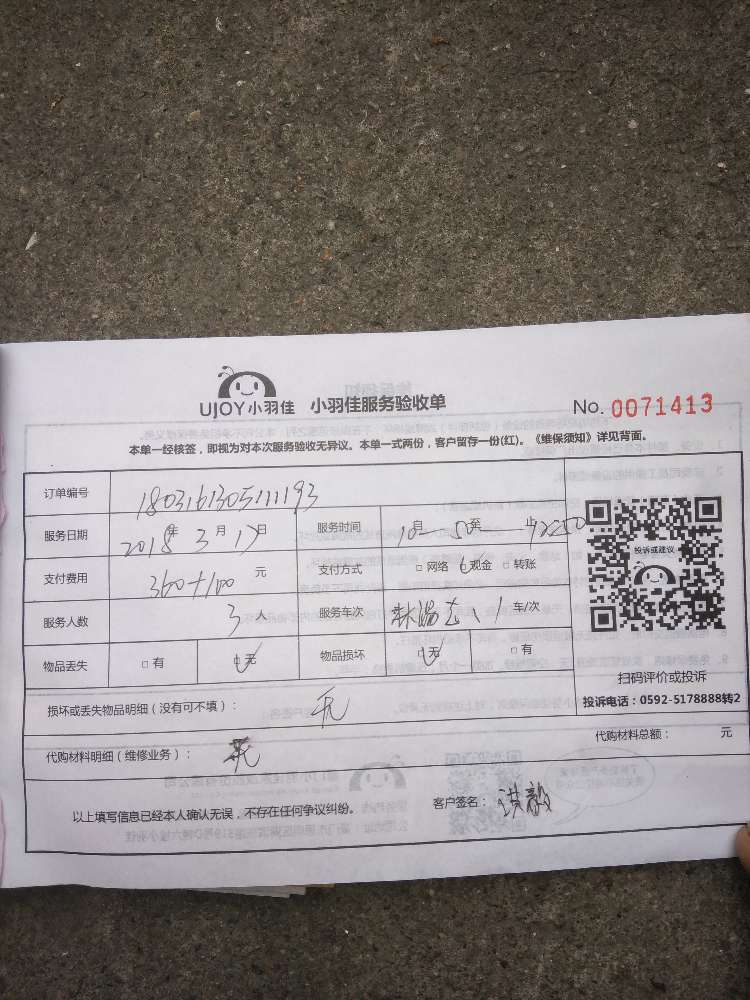 UJOY小羽佳 小羽佳服务验收单 No. 0071413
本单一经核签，即视为对本次服务验收无异议。本单一式两份，客户留存一份(红)。《维保须知》详见背面。
订单编号 180316130511193
服务日期 2018年3月17日 服务时间 10自50至
支付费用 360+100 元 支付方式 □ 网络 □ 现金 □ 转账
服务人数 3人 服务车次 1 车/次
物品丢失 □ 有 □ 无 物品损坏 □ 无 □ 有
投诉或建议
扫码评价或投诉
投诉电话：0592-5178888转2
损坏或丢失物品明细（没有可不填）： 无
代购材料明细（维修业务）： 无 代购材料总额： 元
以上填写信息已经本人确认无误，不存在任何争议纠纷。 客户签名：